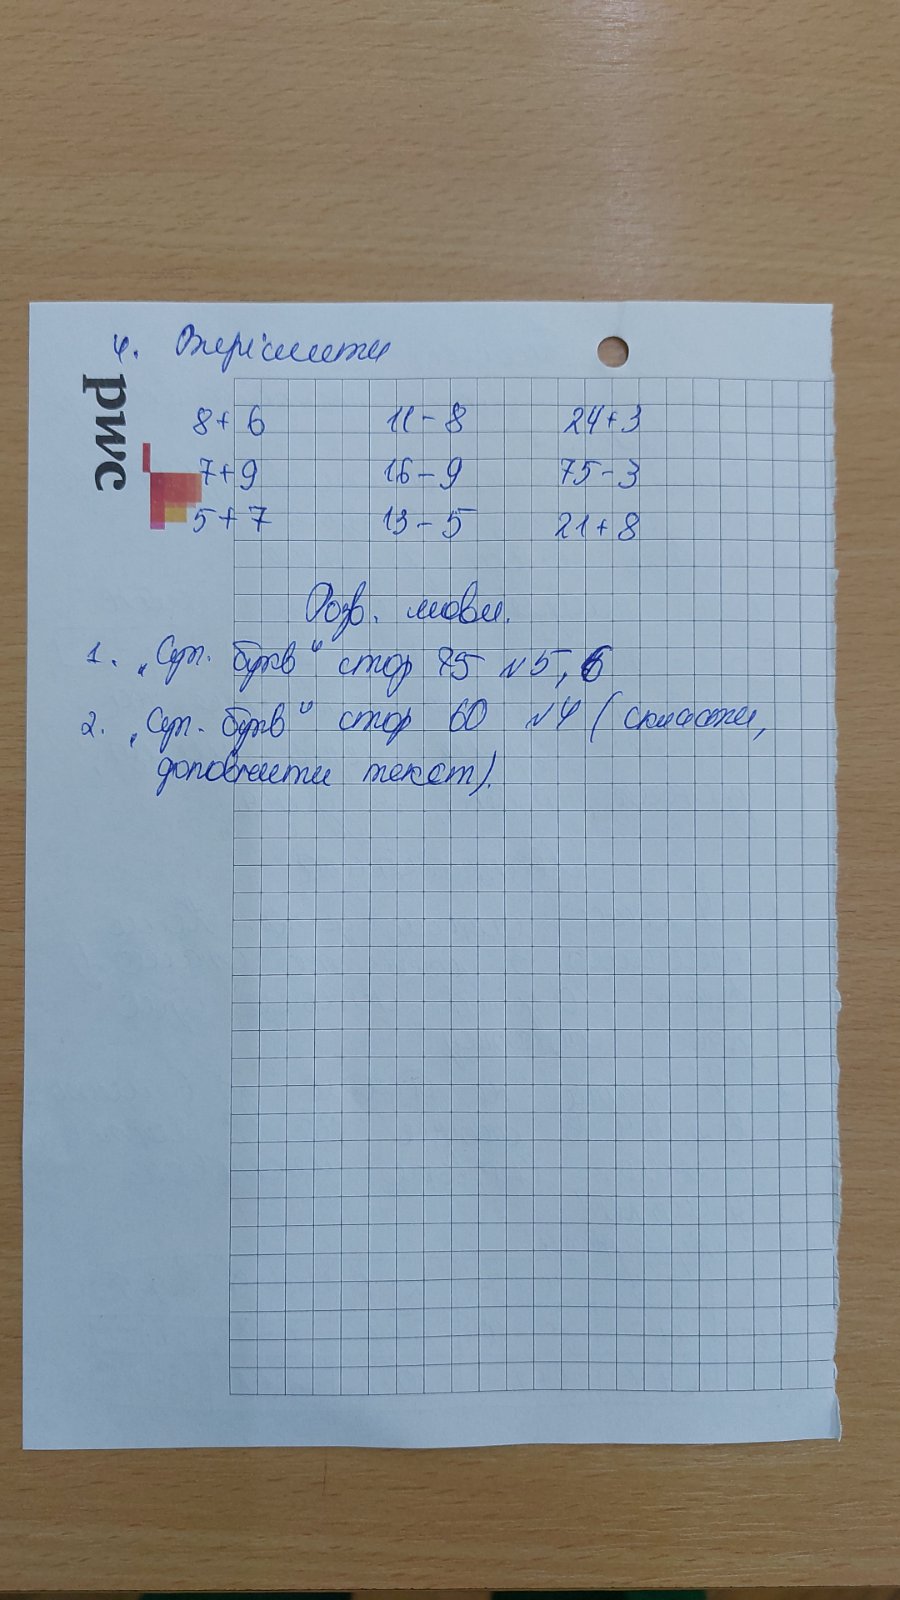 4. Опрізнити
pwc
8+6 11-8 24+3
7+9 16-9 75-3
5+7 13-5 21+8
Розв. мови.
1. „Суп. букв" стор 75 №5, 6
2. „Суп. букв" стор 60 №4 (скласти,
доповнити текст).